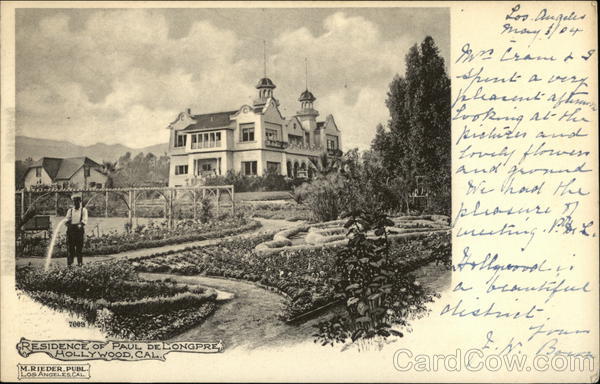 Los Angeles
May 3/04
Mrs Crane & I
spent a very
pleasant afternoon
looking at the
pictures and
lovely flowers
and ground
We had the
pleasure of
meeting. P. de L.
Hollywood is
a beautiful
district
yours
7009
RESIDENCE OF PAUL DE LONGPRE,
HOLLYWOOD, CAL.
M. RIEDER, PUBL.
LOS ANGELES, CAL.
CardCow.com